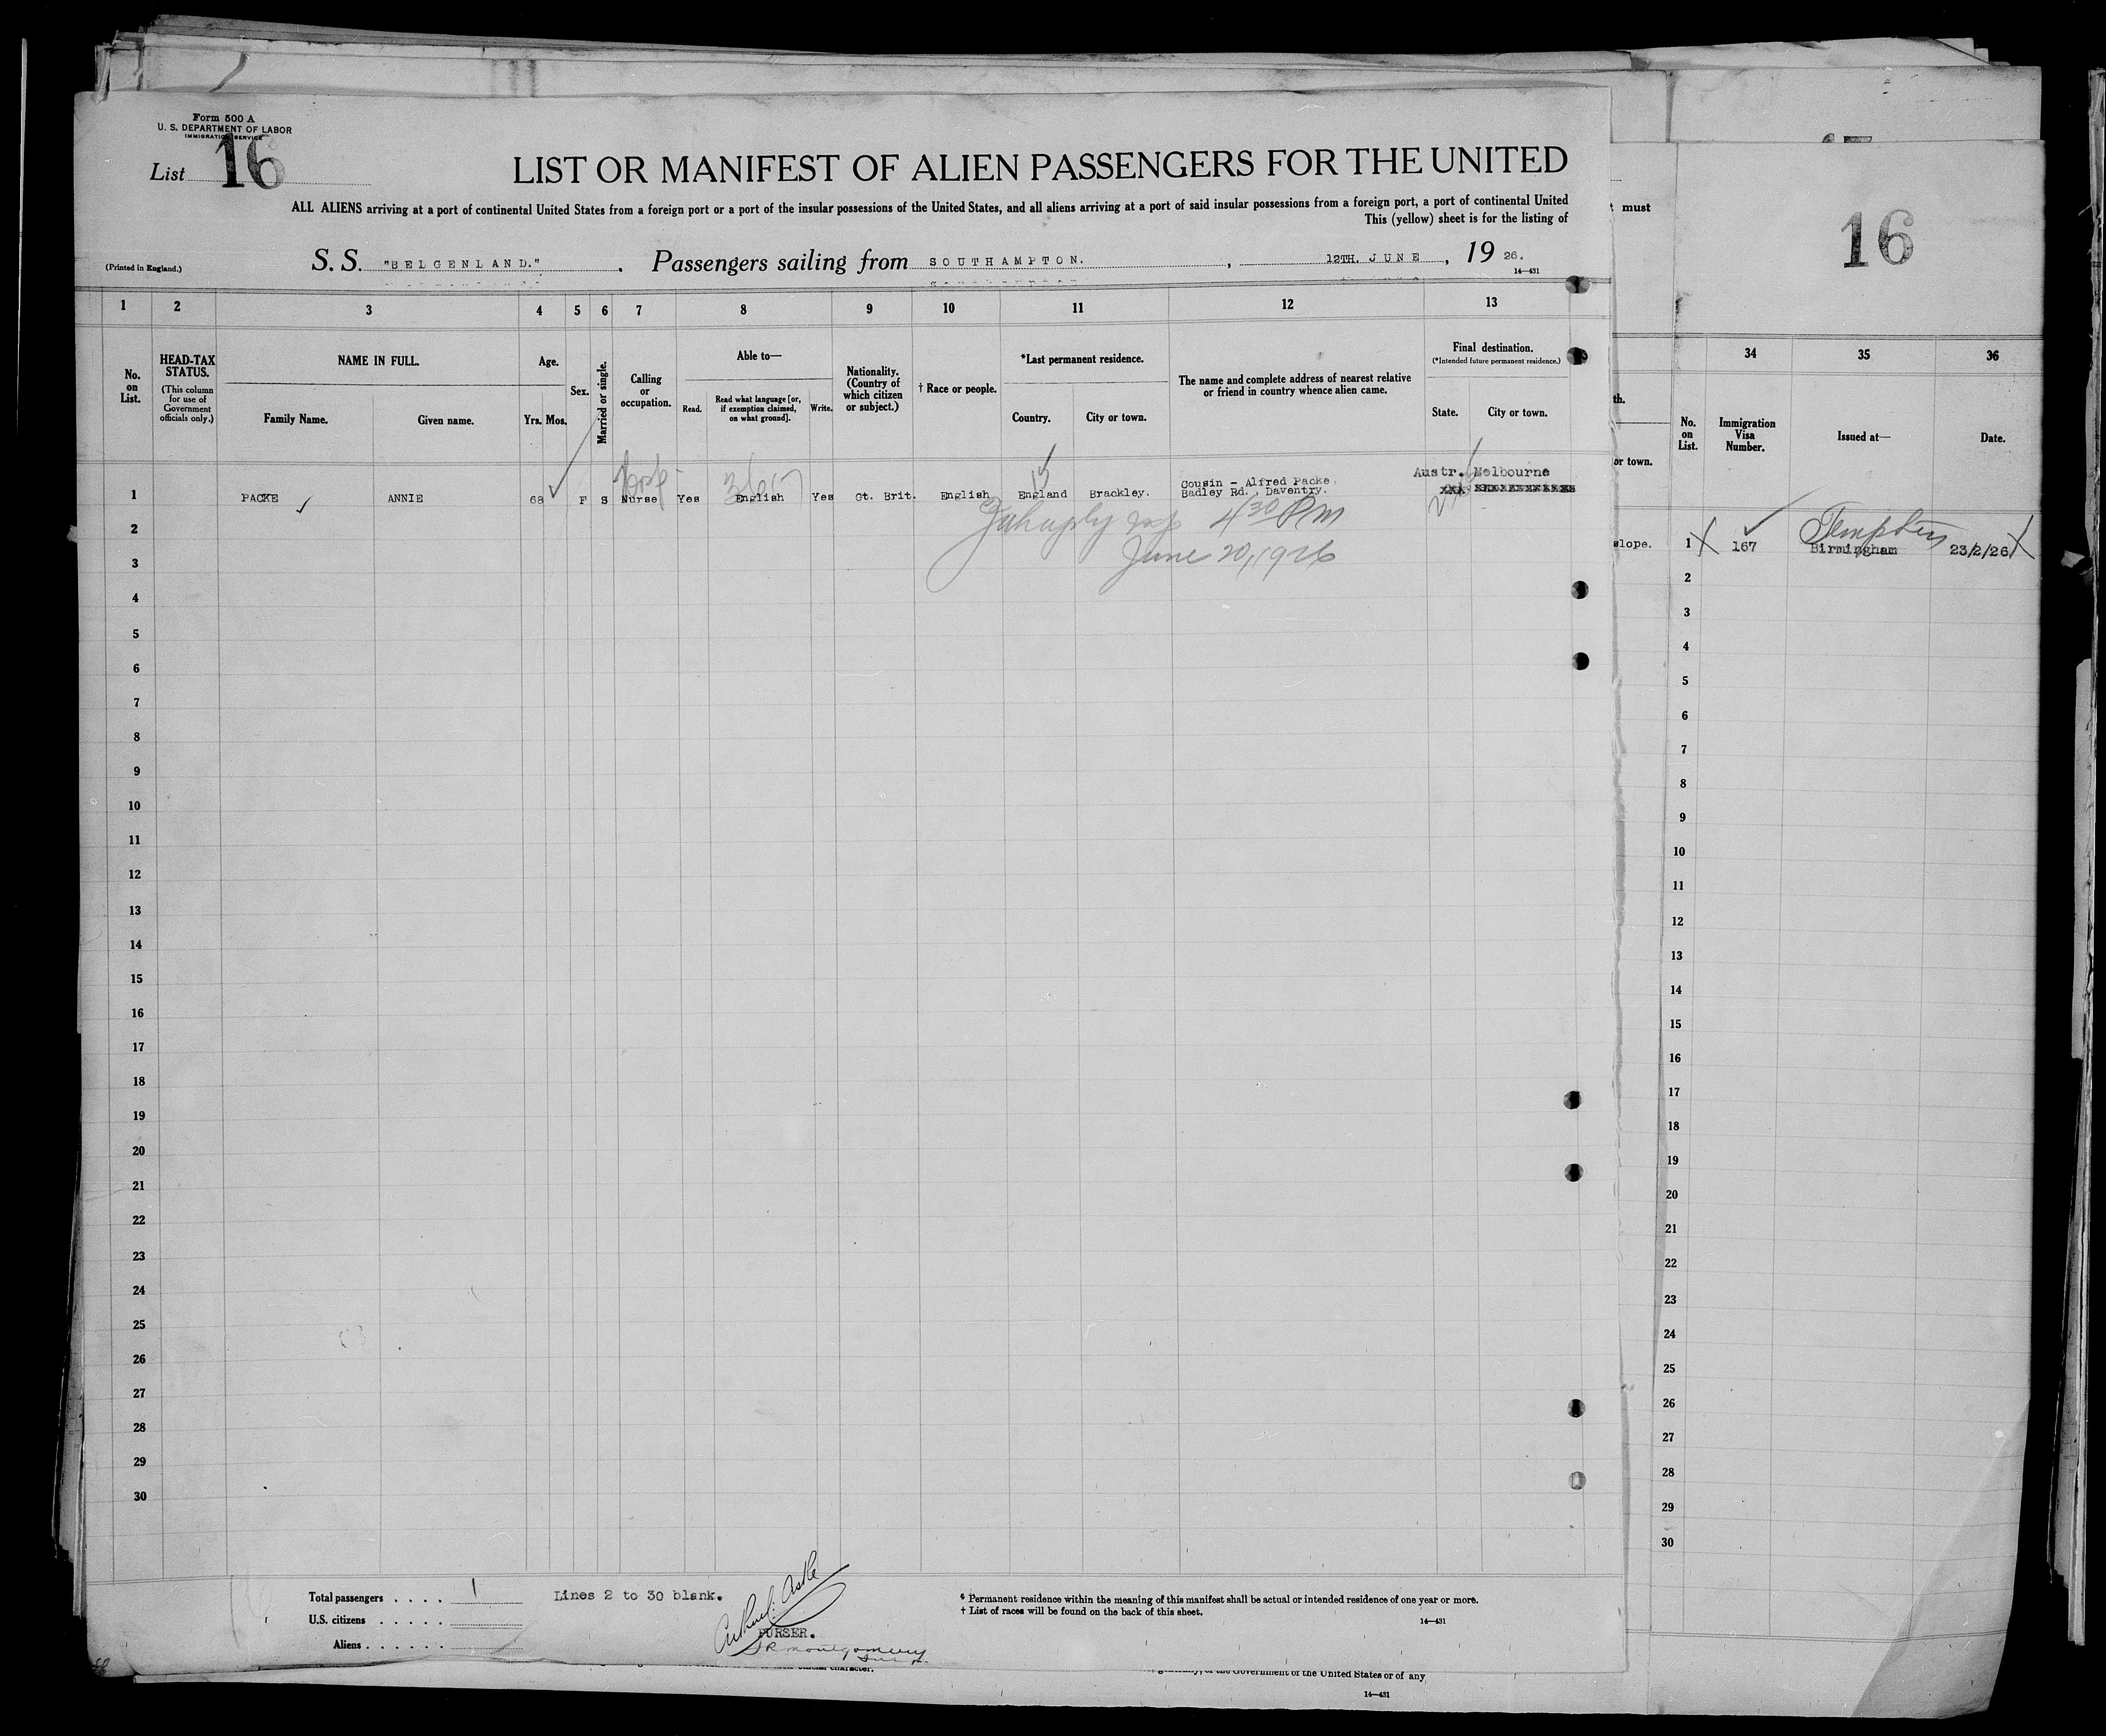 Form 500 A
U. S. DEPARTMENT OF LABOR
IMMIGRATION SERVICE
List 16
LIST OR MANIFEST OF ALIEN PASSENGERS FOR THE UNITED
ALL ALIENS arriving at a port of continental United States from a foreign port or a port of the insular possessions of the United States, and all aliens arriving at a port of said insular possessions from a foreign port, a port of continental United
This (yellow) sheet is for the listing of
(Printed in England.)
S. S. "BELGENLAND." . Passengers sailing from SOUTHAMPTON. , 12TH. JUNE , 19 26.
14—431
1 2 3 4 5 6 7 8 9 10 11 12 13
No. on List.
HEAD-TAX STATUS.
(This column for use of Government officials only.)
NAME IN FULL.
Family Name. Given name.
Age.
Yrs. Mos.
Sex.
Married or single.
Calling or occupation.
Able to—
Read. Read what language [or, if exemption claimed, on what ground]. Write.
Nationality. (Country of which citizen or subject.)
† Race or people.
*Last permanent residence.
Country. City or town.
The name and complete address of nearest relative or friend in country whence alien came.
Final destination.
(*Intended future permanent residence.)
State. City or town.
Austr. Melbourne
1 PACKE ANNIE 68 F S Nurse Yes English Yes Gt. Brit. English England Brackley. Cousin - Alfred Packe,
Badley Rd., Daventry.
4 30 PM
June 20, 1926
2
3
4
5
6
7
8
9
10
11
12
13
14
15
16
17
18
19
20
21
22
23
24
25
26
27
28
29
30
Total passengers . . . . 1
U.S. citizens . . . . .
Aliens . . . . . .
Lines 2 to 30 blank.
PURSER.
* Permanent residence within the meaning of this manifest shall be actual or intended residence of one year or more.
† List of races will be found on the back of this sheet.
14—431
Government of the United States or of any
14—431
must
th.
or town.
slope.
16
34 35 36
No. on List.
Immigration Visa Number.
Issued at—
Date.
1 167 Birmingham 23/2/26
2
3
4
5
6
7
8
9
10
11
12
13
14
15
16
17
18
19
20
21
22
23
24
25
26
27
28
29
30